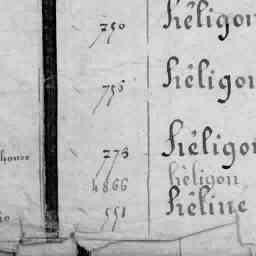 750 Kéligon
756 Kéligon
house
276 Kéligon
4866 kéligon
551 Kéline